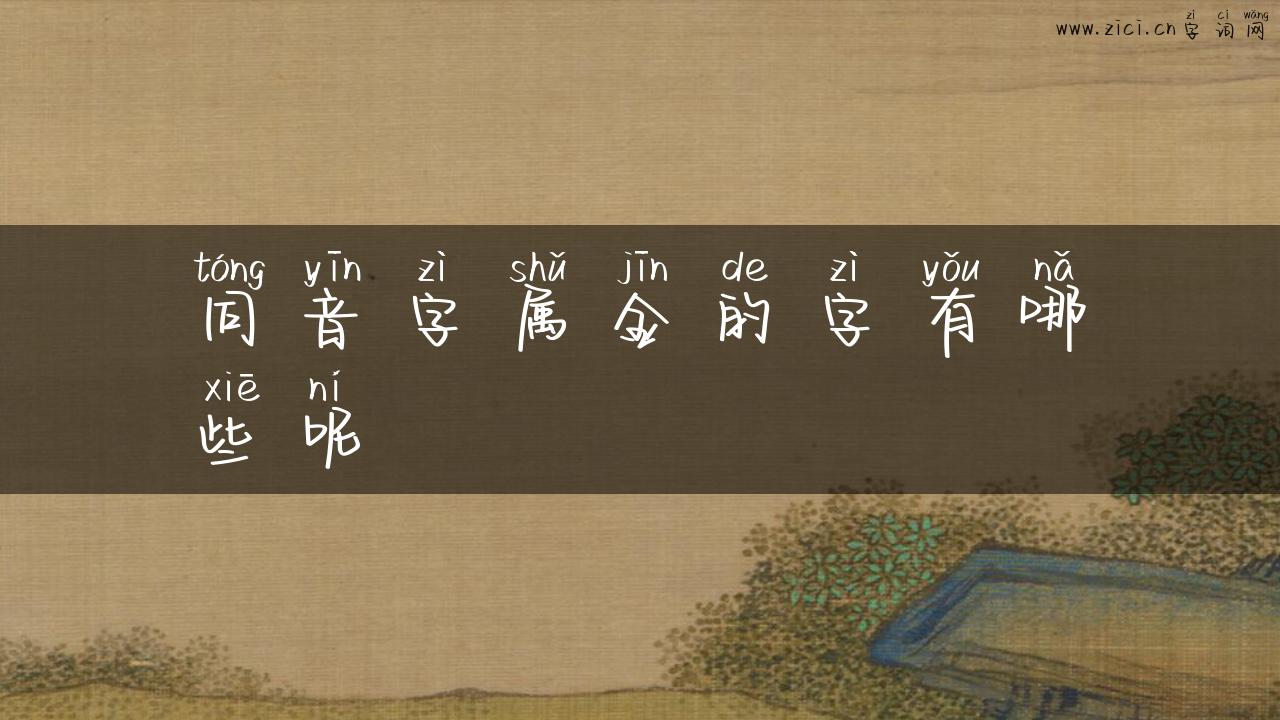 zì cí wǎng
www.zici.cn 字词网
tóng yīn zì shǔ jīn de zì yǒu nǎ
同音字属金的字有哪
xiē ní
些呢